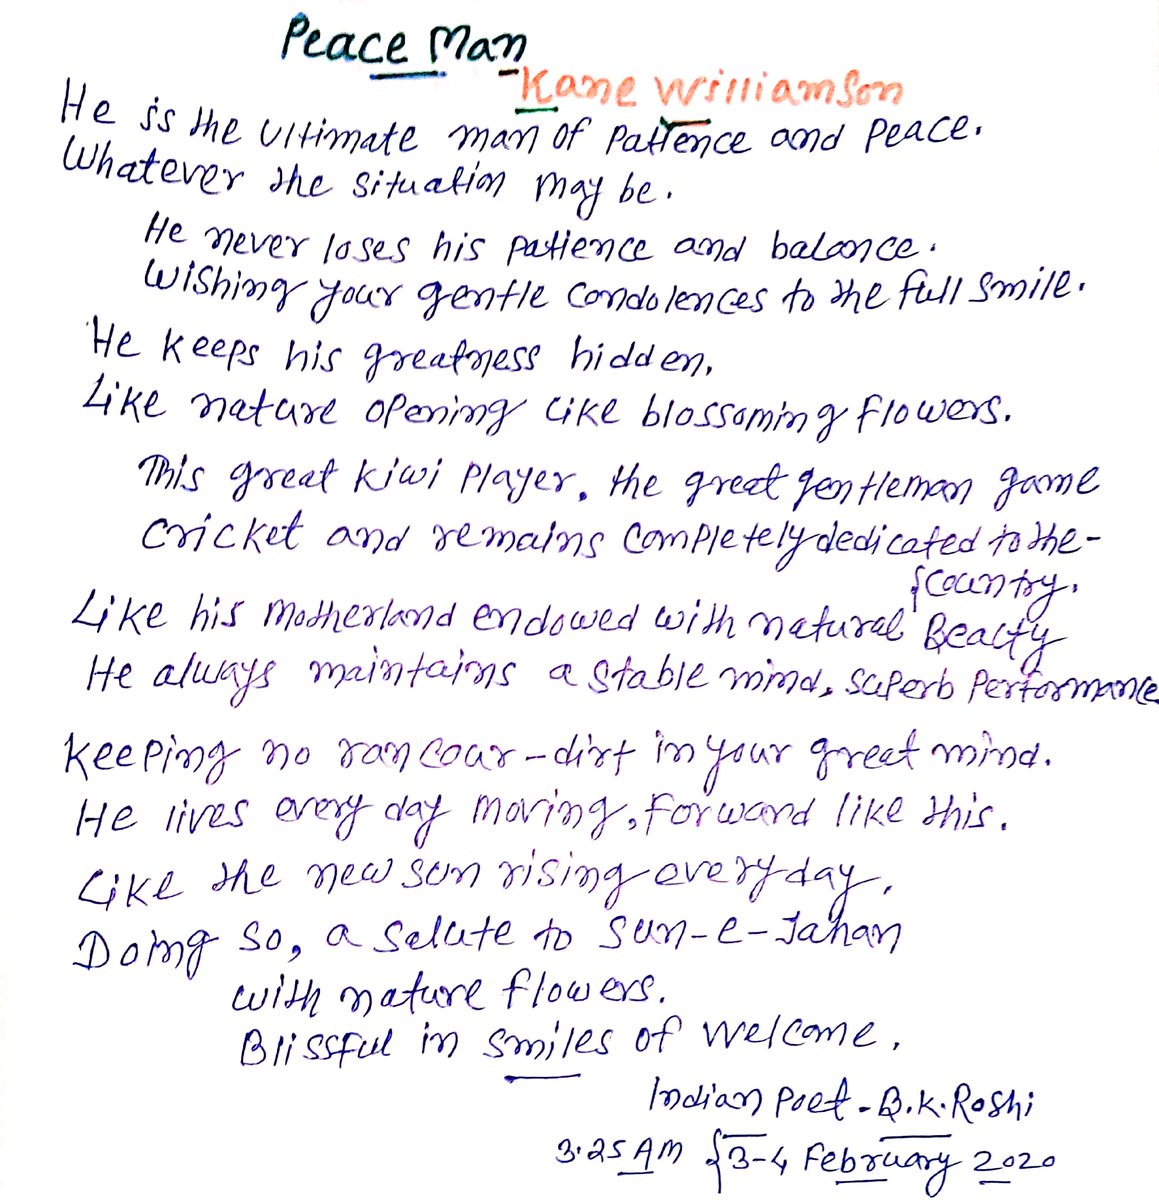 Peace Man
- Kane Williamson
He is the ultimate man of Patience and Peace.
Whatever the situation may be.
He never loses his patience and balance.
Wishing your gentle condolences to the full smile.
He keeps his greatness hidden,
Like nature opening like blossoming flowers.
This great kiwi Player, the great gentleman game
cricket and remains completely dedicated to the-
{country.
Like his Motherland endowed with natural Beauty
He always maintains a stable mind, superb Performance
Keeping no rancour-dirt in your great mind.
He lives every day moving, forward like this.
Like the new sun rising everyday,
Doing so, a salute to Sun-e-Jahan
with nature flowers.
Blissful in smiles of welcome,
Indian Poet - B.K. Roshi
3.25 AM {3-4 February 2020